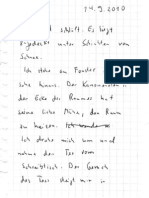 14.9.2010
d schläft. Es liegt
zugedeckt unter Schichten von
Schnee.
Ich stehe am Fenster
Der Kanonenofen in
der Ecke des Raumes hat
seine liebe Mühe, den Raum
zu heizen. Ich
Ich drehe mich um und
nehme den Tee vom
Schreibtisch. Der Geruch
des Tees steigt mir in